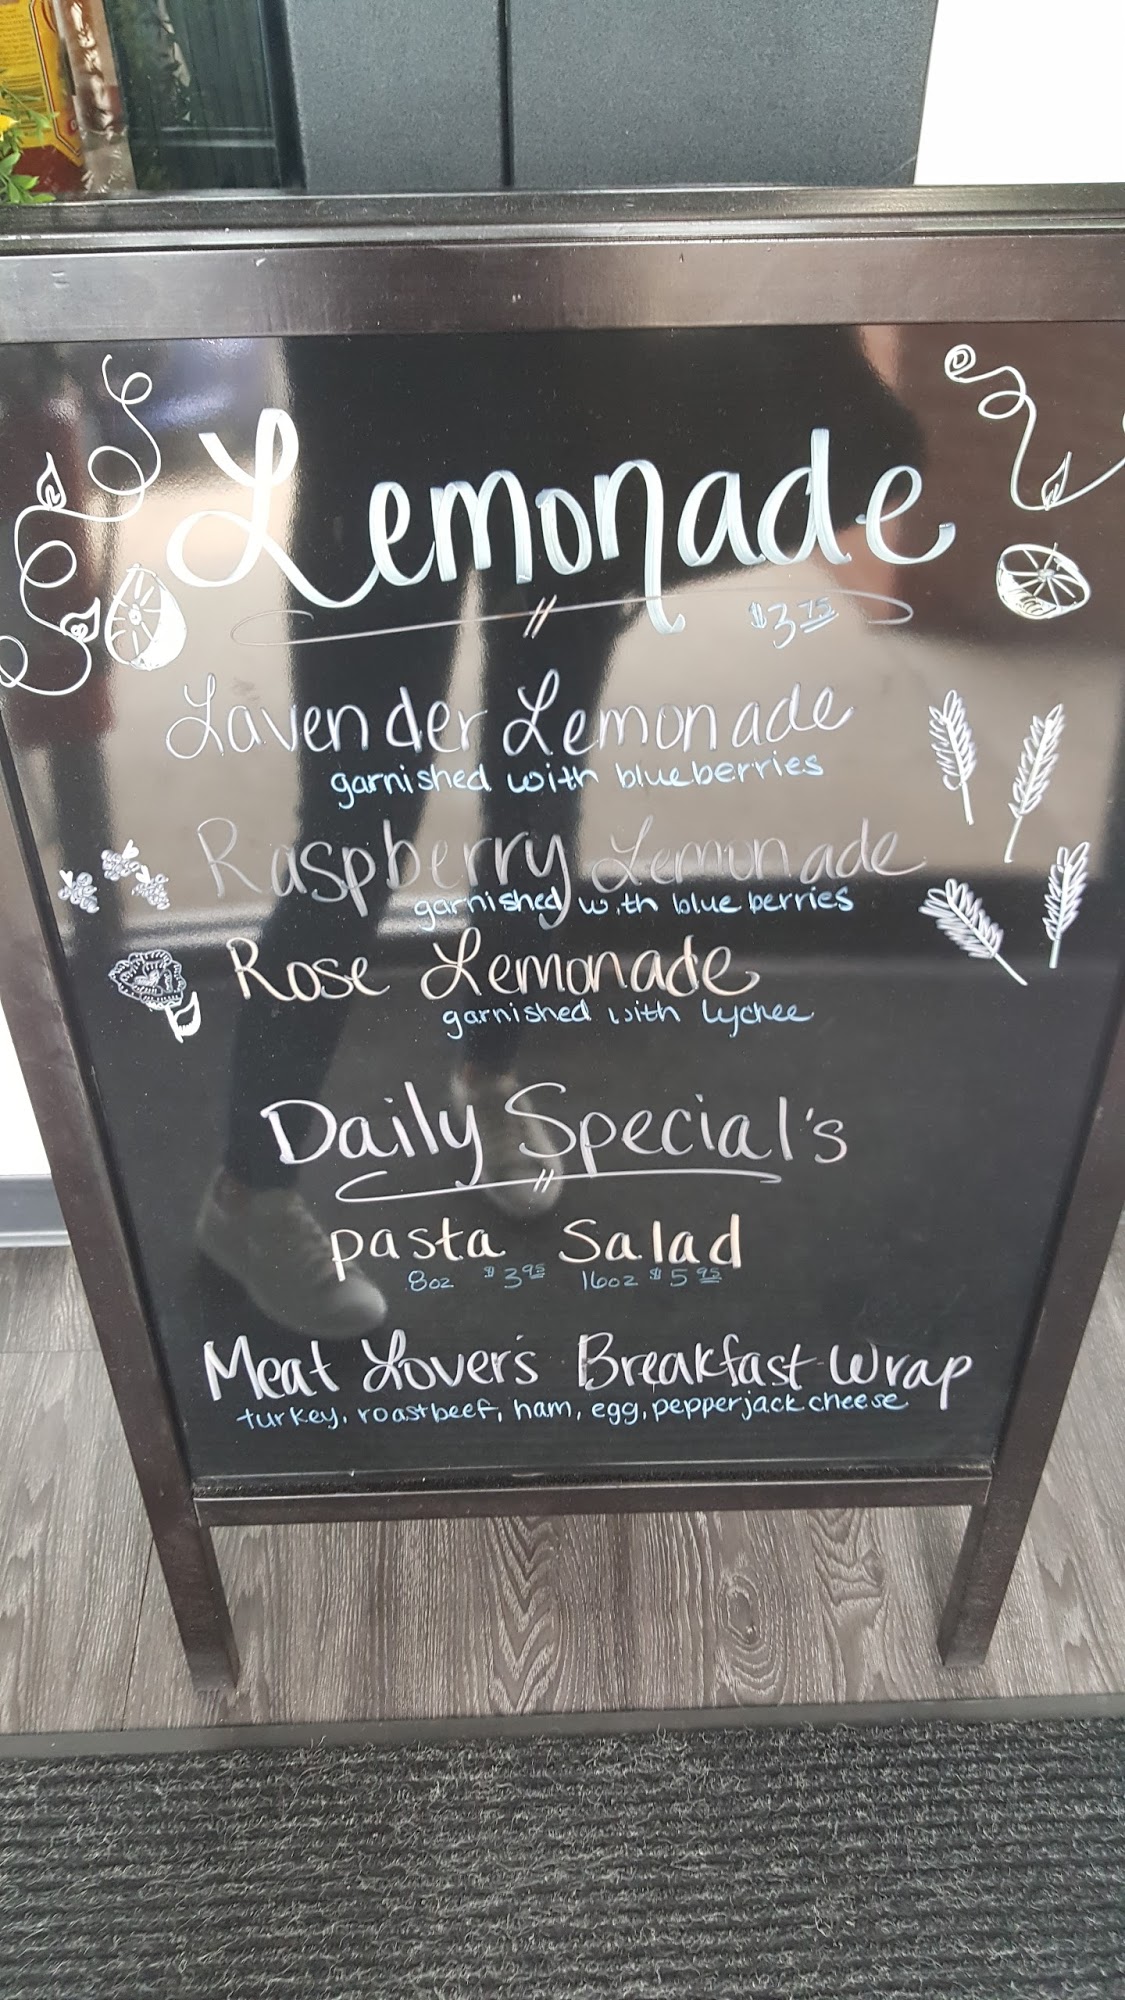 Lemonade
$3.75
Lavender Lemonade
garnished with blueberries
Raspberry Lemonade
garnished with blue berries
Rose Lemonade
garnished with lychee
Daily Special's
pasta Salad
8oz $3.95 16oz $5.95
Meat Lover's Breakfast Wrap
turkey, roastbeef, ham, egg, pepperjack cheese